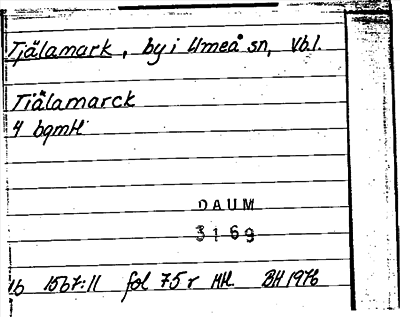 Tjälamark, by i Umeå sn, Vb.l.
Tiälamarck
4 bgmH
DAUM
3169
Vb 1567:11 fol 75r HH. BH 1976